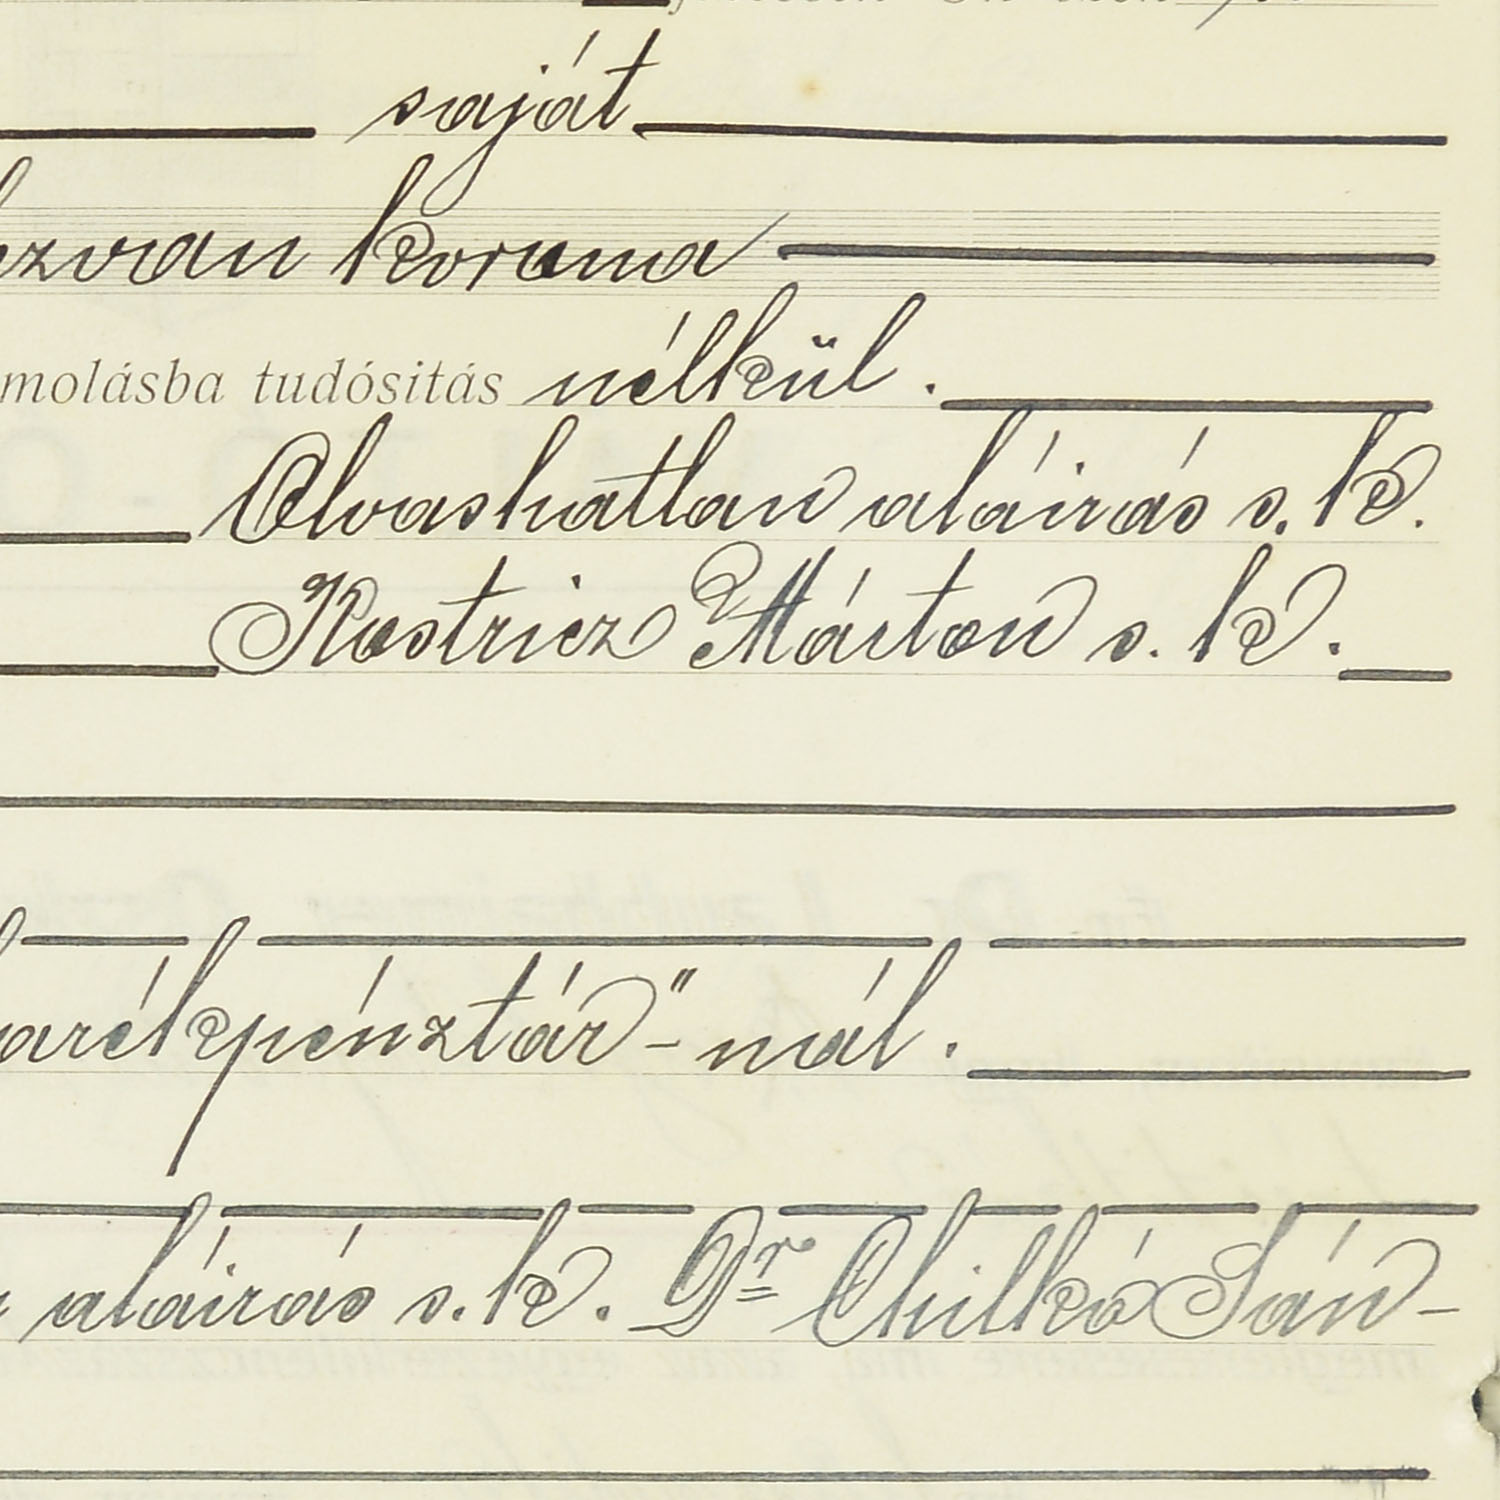 saját
korona
molásba tudósitás nélkül.
Olvashatlan aláirás s. k.
Kostricz Márton s. k.
arékpénztár"-nál.
aláirás s. k. Dr Chilkó Sán-